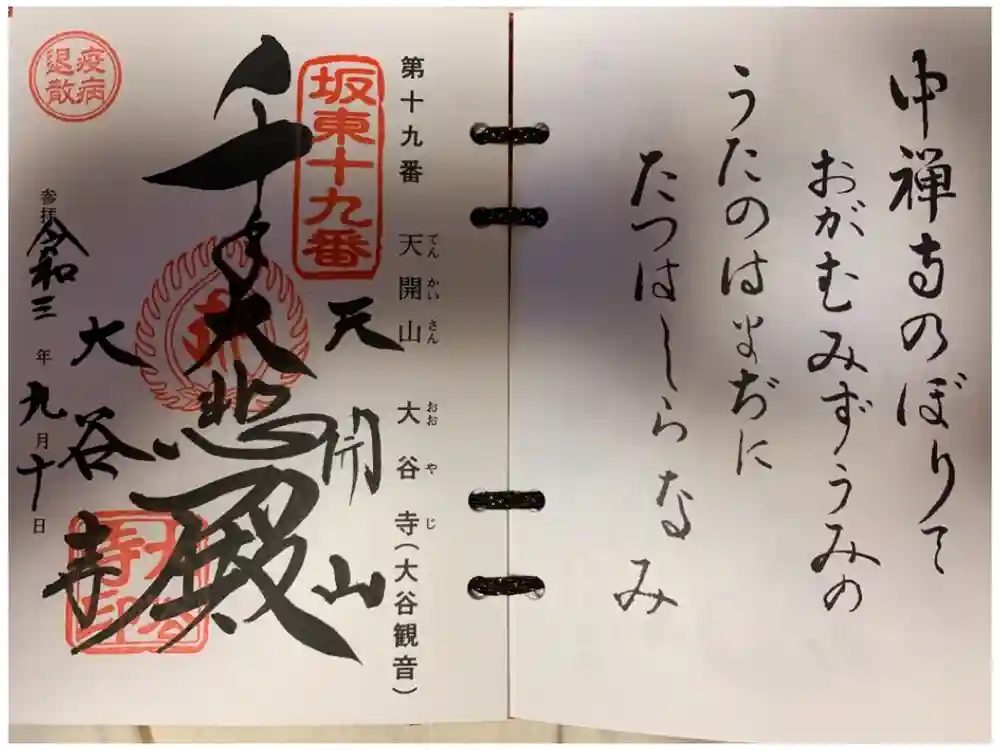 中禅寺のぼりて
おがむみずうみの
うたのはまぢに
たつはしらなみ
第十九番 天開山 大谷寺(大谷観音)
てんかいさん おおやじ
坂東十九番
天開山
千手大悲殿
大谷寺
大谷寺印
疫病退散
参拝令和三年九月十日